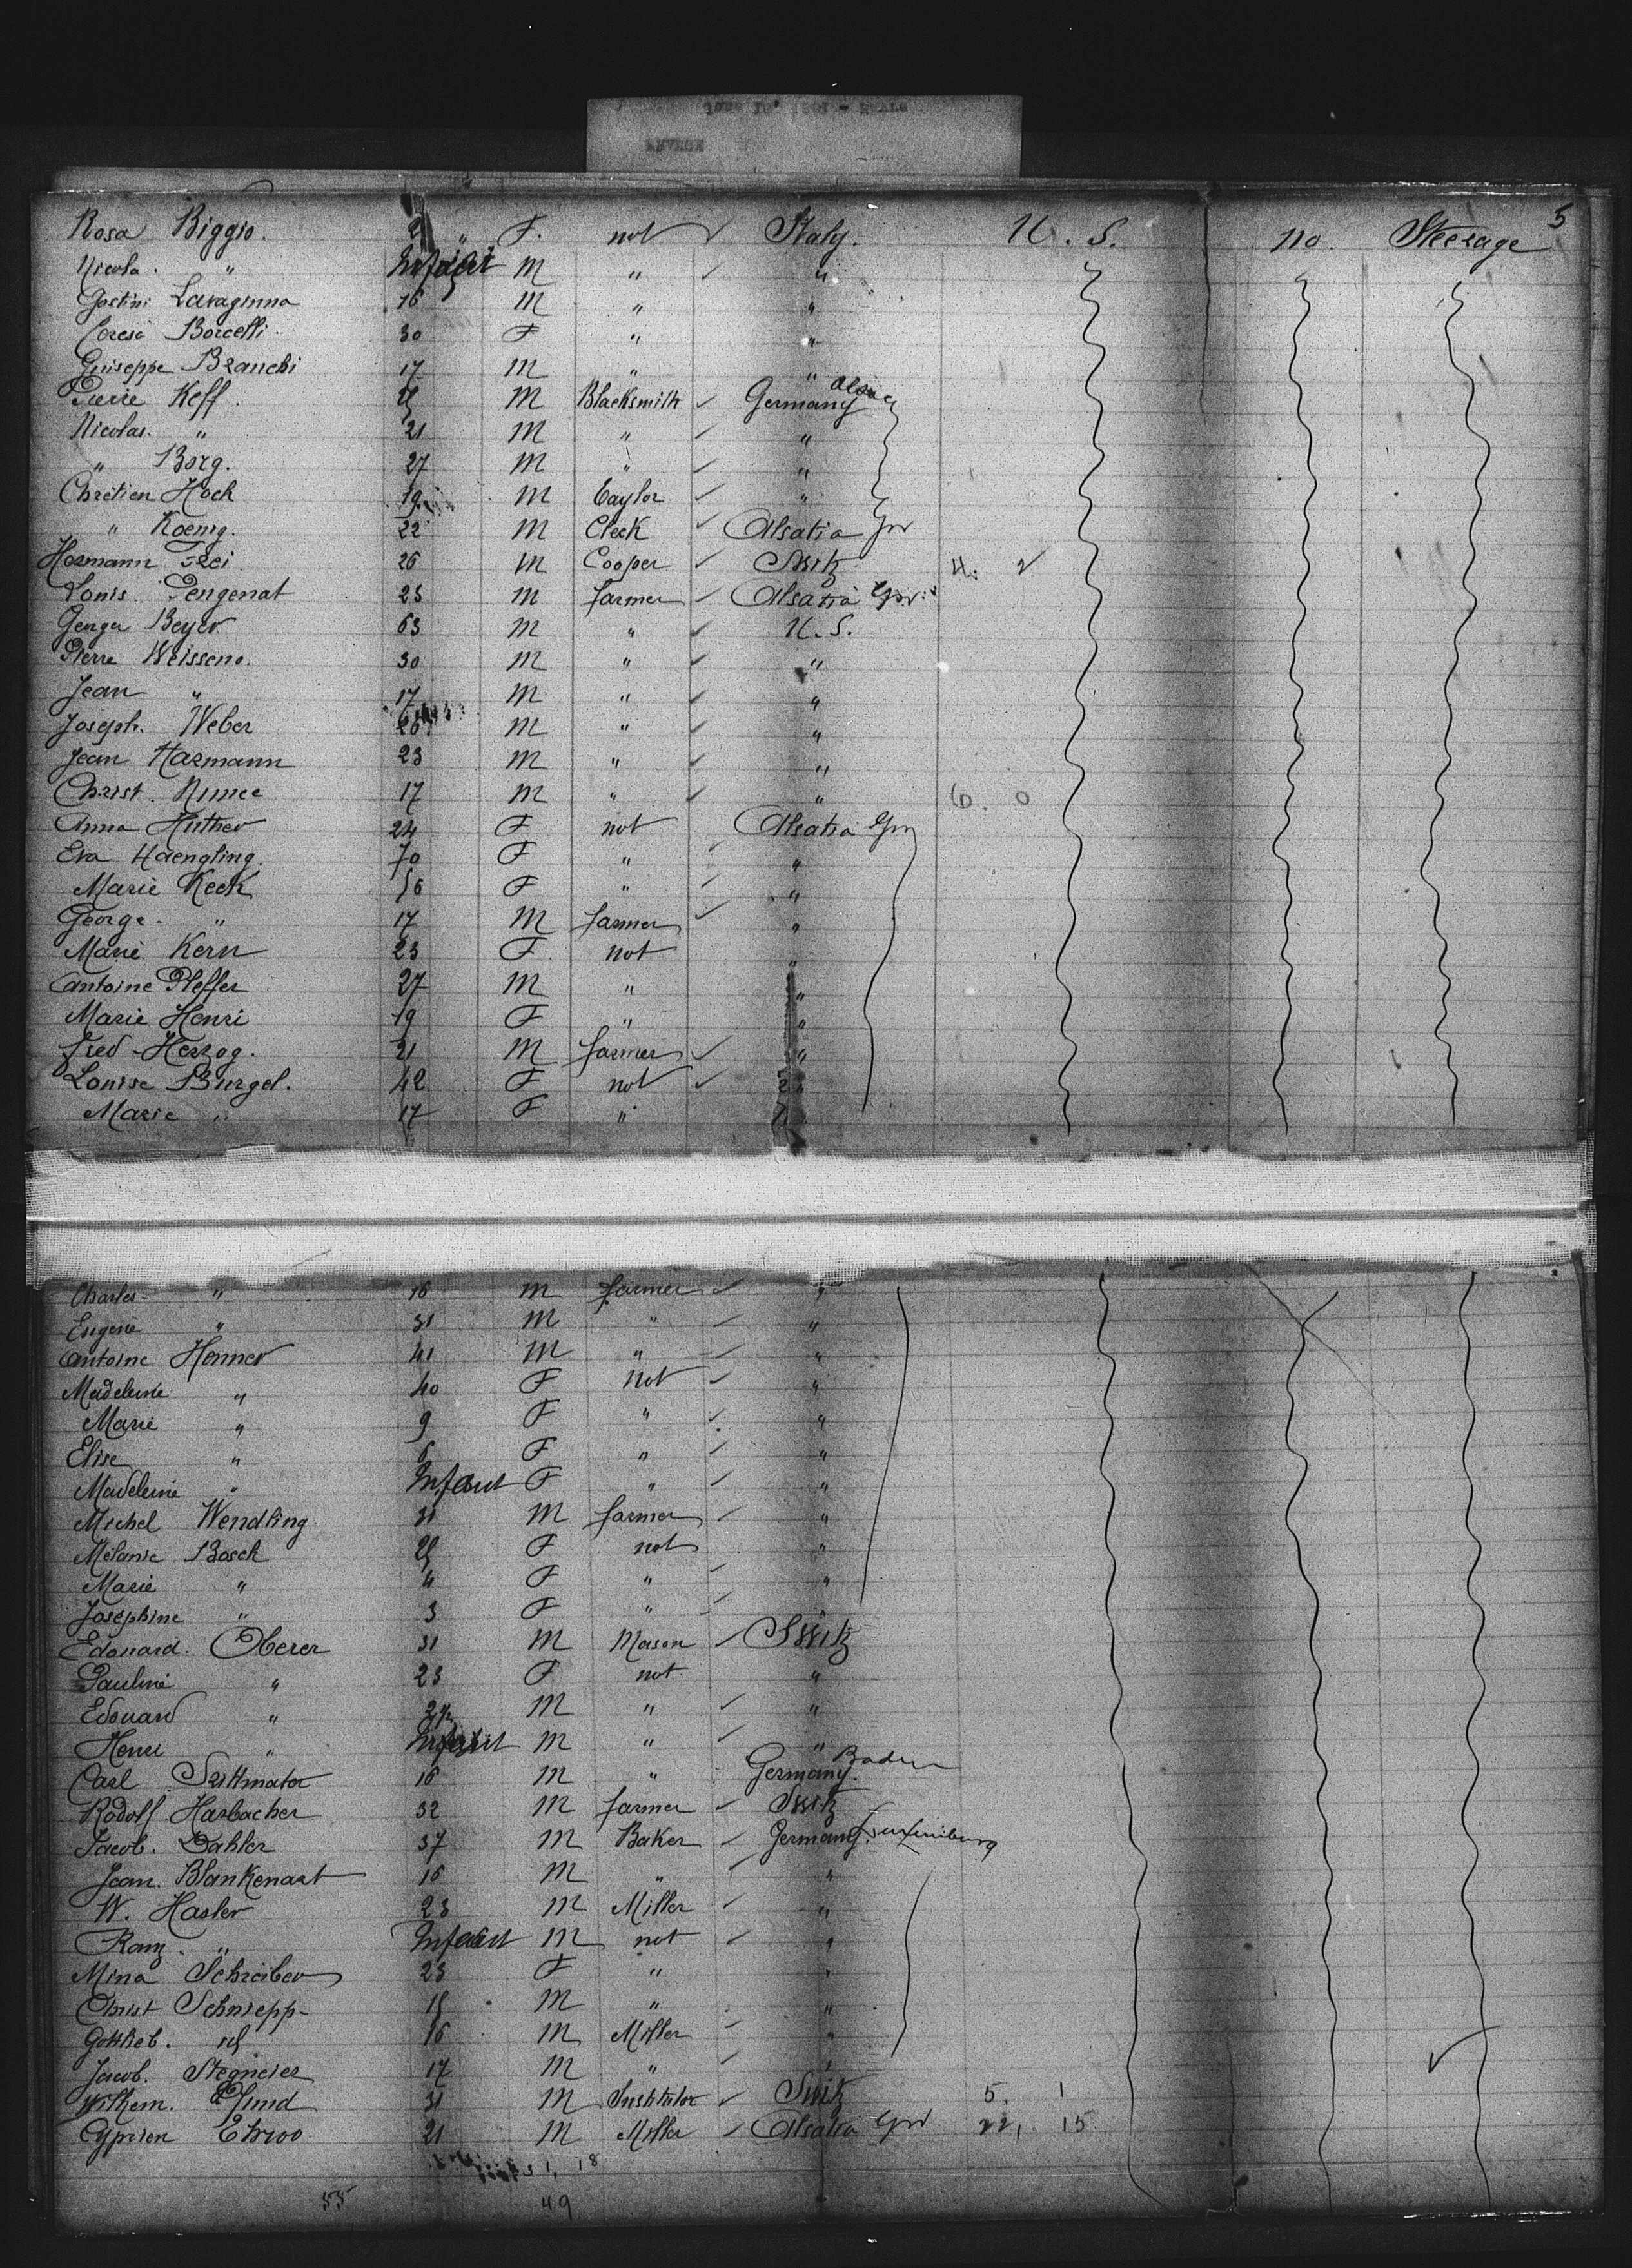 5
Rosa Biggio. 2 " F. not ✓ Italy. U. S. no. Steerage
Nicola. " Infant M " ✓ "
Gostini Lavaginna 16 M " "
Teresa Borcelli 30 F " "
Guiseppe Branchi 17 M " "
Pierre Keff. M Blacksmith ✓ Germany Alsace
Nicolas. " 21 M " ✓ "
" Borg. 27 M " ✓ "
Chrétien Hoch 19 M Taylor ✓ "
" Koenig. 22 M Cleck ✓ Alsatia Gr
Hermann Frei 26 M Cooper ✓ Switz 4.
Louis Pengenat 25 M farmer ✓ Alsatia Gr
George Beyer 63 M " ✓ U. S.
Pierre Weisseno. 30 M " ✓ "
Jean " 17 M " ✓ "
Joseph. Weber 26 M " ✓ "
Jean Harmann 23 M " ✓ "
Christ. 17 M " ✓ " 6. 0
Anna Huther 24 F not Alsatia Gr
Eva Haengling. 70 F " "
Marie Keck 56 F " ✓ "
George. " 17 M farmer ✓ "
Marie Kern 23 F not "
Antoine Pfeffer 27 M " "
Marie Henri 19 F " "
Fred Herzog. 21 M farmer ✓ "
Louise Burgel. 42 F not ✓ "
Marie " 17 F "
Charles " 16 M farmer ✓ "
Eugene " 31 M " ✓ "
Antoine Henner 41 M " ✓ "
Madeleine " 40 F not ✓ "
Marie " 9 F " ✓ "
Elise " 6 F " ✓ "
Madeleine " Infant F " ✓ "
Michel Wendling 31 M farmer ✓ "
Mélanie Bosch 25 F not "
Marie " 4 F " ✓ "
Josephine " 3 F " ✓ "
Edouard. Oberer 31 M Mason ✓ Switz
Pauline " 23 F not "
Edouard " M " ✓ "
Henri " Infant M " ✓ "
Carl 16 M " Germany. Baden
Rodolf Harbacher 32 M farmer ✓ Switz
Jacob. Dahler 37 M Baker ✓ Germany.
Jean. Blankenart 16 M " ✓ "
W. Hasler 23 M Miller ✓ "
" Infant M not ✓ "
Mina Schreiber 23 F " "
Christ Schniepp 15 M " "
Gottlieb. id 16 M Miller ✓ "
Jacob. Stegmeier 17 M " ✓ "
Wilhem. Pfund 31 M Institutor ✓ Switz 5. 1
Cyprien 21 M Miller ✓ Alsatia Gr 22, 15
1, 18
55 49